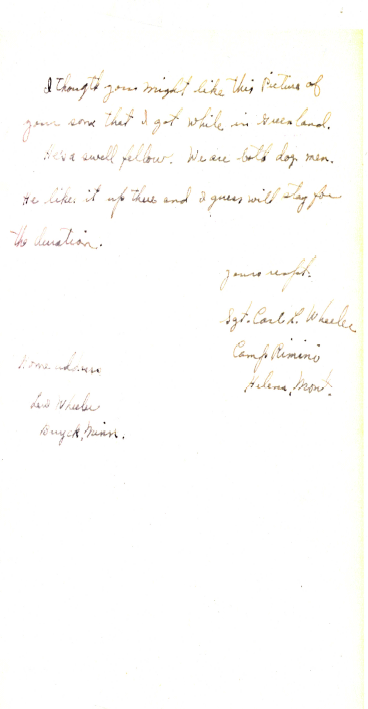 I thought you might like this Picture of
your son that I got while in Greenland.
He's a swell fellow. We are both dog men.
He like it up there and I guess will stay for
the duration.
yours respt.
Sgt. Carl L. Wheeler
Camp Rimini
Helena, Mont.
Home address
Wheeler
Buyck, Minn.